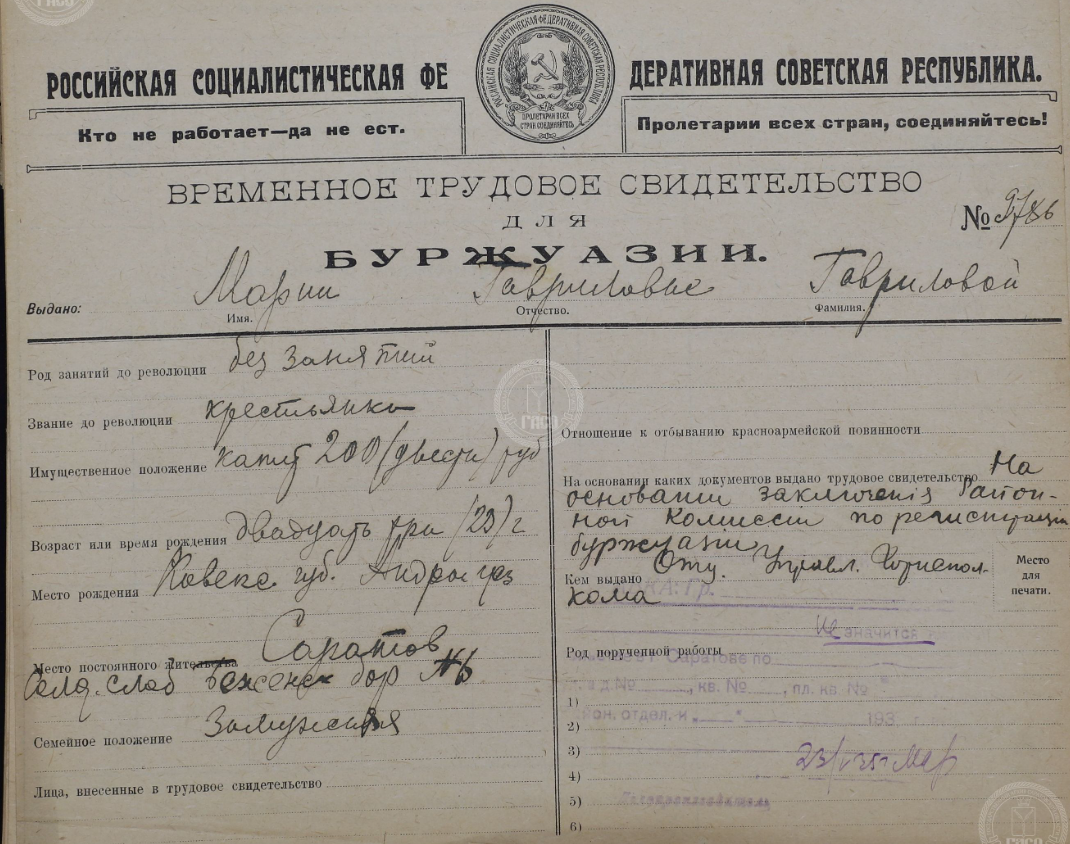 РОССИЙСКАЯ СОЦИАЛИСТИЧЕСКАЯ ФЕДЕРАТИВНАЯ СОВЕТСКАЯ РЕСПУБЛИКА.
РОССИЙСКАЯ СОЦИАЛИСТИЧЕСКАЯ ФЕДЕРАТИВНАЯ СОВЕТСКАЯ РЕСПУБЛИКА
ПРОЛЕТАРИИ ВСЕХ СТРАН СОЕДИНЯЙТЕСЬ
Кто не работает—да не ест.
Пролетарии всех стран, соединяйтесь!
ВРЕМЕННОЕ ТРУДОВОЕ СВИДЕТЕЛЬСТВО
ДЛЯ
№ 9786
БУРЖУАЗИИ.
Выдано: Марии Гавриловне Гавриловой
Имя. Отчество. Фамилия.
Род занятий до революции без занятий
Звание до революции крестьянка
Имущественное положение капит 200 (двести) руб
Возраст или время рождения двадцать три (23) г
Место рождения губ.
Место постоянного жительства Саратов
слоб №
Семейное положение Замужняя
Лица, внесенные в трудовое свидетельство
Отношение к отбыванию красноармейской повинности
На основании каких документов выдано трудовое свидетельство На
основании заключения Район-
ной Комиссии по регистрации
буржуазии
Кем выдано Отд. Управл. Гориспол-
кома
Место
для
печати.
Не значится
Род порученной работы
Саратове по
№ , кв. № , пл. кв. №
отдел. 193
1)
2)
3)
4)
5)
6)
ГАСО